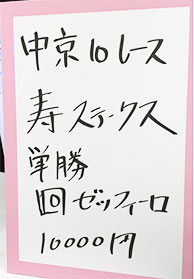 中京10レース
寿ステークス
単勝
⑩ゼッフィーロ
10000円